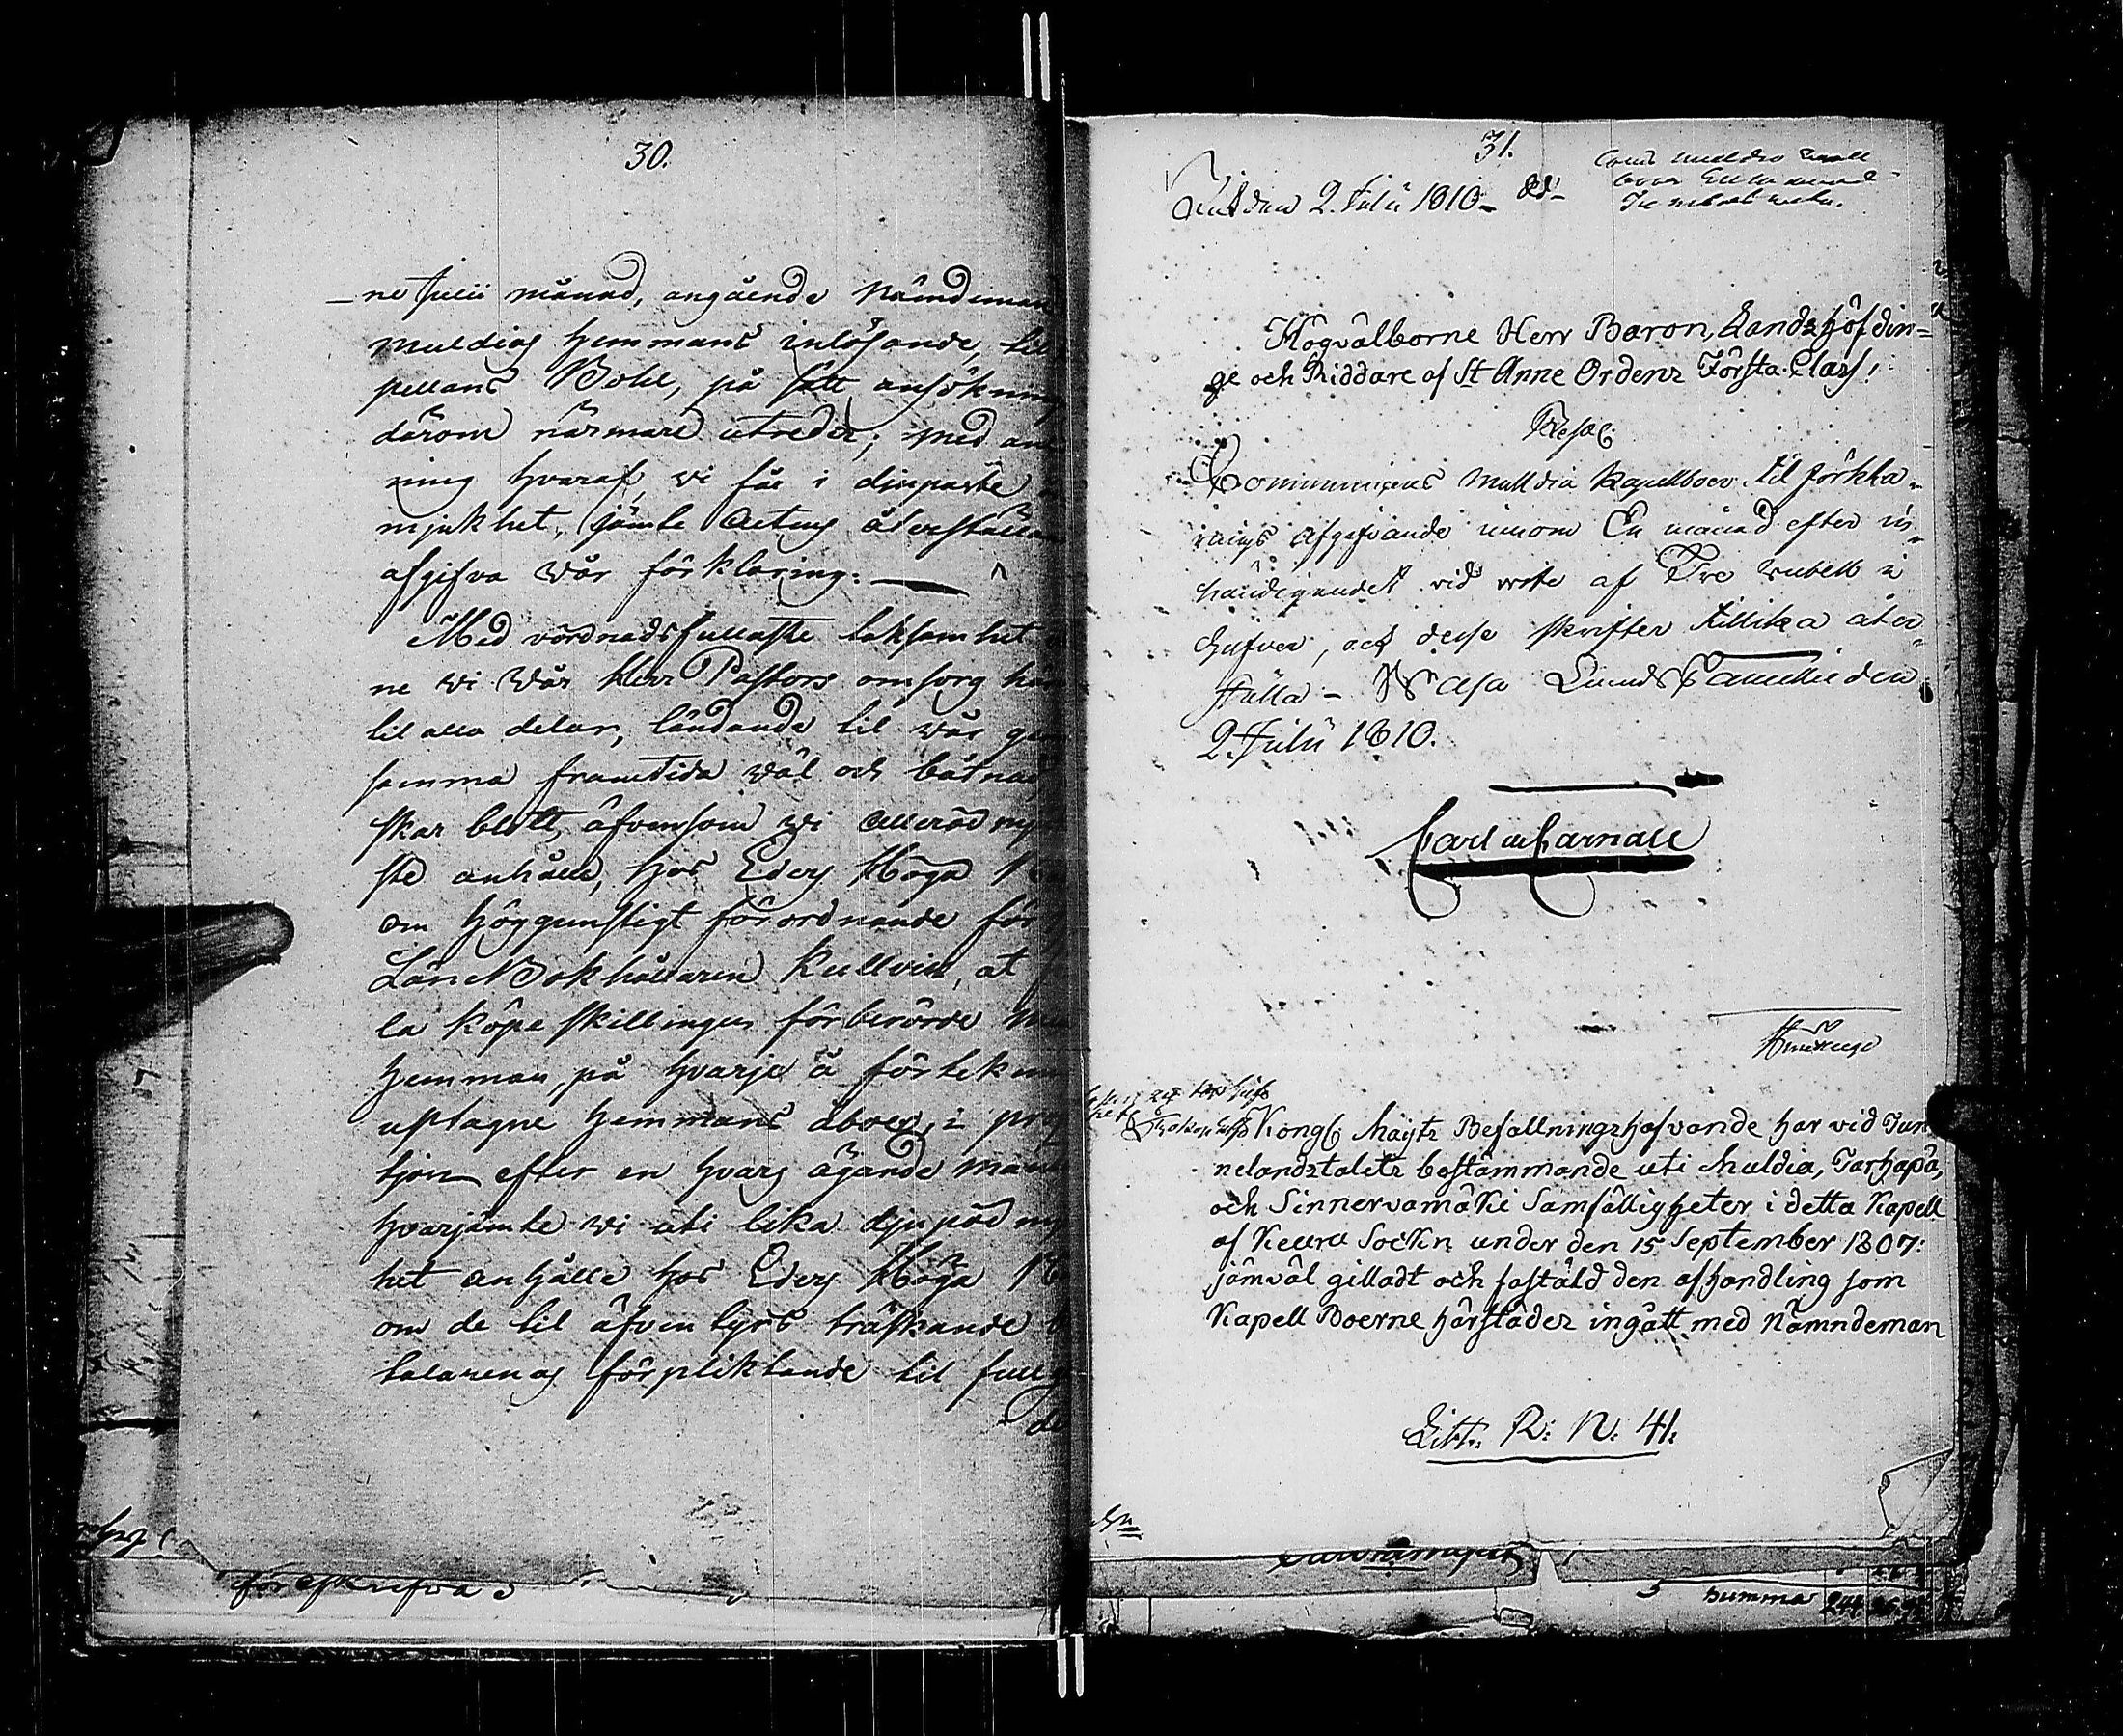 30.
ne Julii månad, angående Nämdeman
Muldias Hemmans inlösande, til
pellans Bohl, på sätt ansökning
därom närmare utreder; med an
ning hvaraf, vi få i djupaste
mjukhet, jämte Acteng återställan
afgifva Vår förklaring.
Med vördnadsfullaste taksamhet
ne Vi Vår Herr Pastors omsorg
til alla delar, ländande til vår
samma framtida väl och båtnad
skar blott, äfvensom vi allerödmju
ste anhålle, hos Eders Höga
om höggunstigt förordnande för
Länsbokhållaren Kullvik, at
la köpeskillingen för berörde
Hemman, på hvarje å förtekn
uptagne Hemmans åboer, i pro
tjon efter en hvars ägande mant
hvarjämte vi uti lika djupöd
het anhålle hos Eders Höga
om de til äfventyrs träskande
talarenas förpliktande til full
de
föreskrifva
31.
Ink den 2. Julii 1810.
Högvälborne Herr Baron, Landshöfdin=
ge och Riddare af St Anne Ordens Första Class!
Resol:
Communiceras Mulldia Kapellboer til förkla-
rings afgifvande innom En månad efter in-
händigandet vid vite af Tre Rubell
, och desse skrifter tillika åter-
ställa - Wasa Lands Cancellie den
2. Julii 1810.
Carl de Carnall
Kongl: Maijts Befallningshafvande har vid Tun
nelandstalets bestämmande uti Muldia, Tarhapä,
och Sinnervamäki Samfälligheter i detta Kapell
af Keuru Sockn under den 15 September 1807:
jämväl gilladt och fastäld den afhandling som
Kapell Boerne härstädes ingått med Nämndeman
Litt: R: N: 41.
Summa